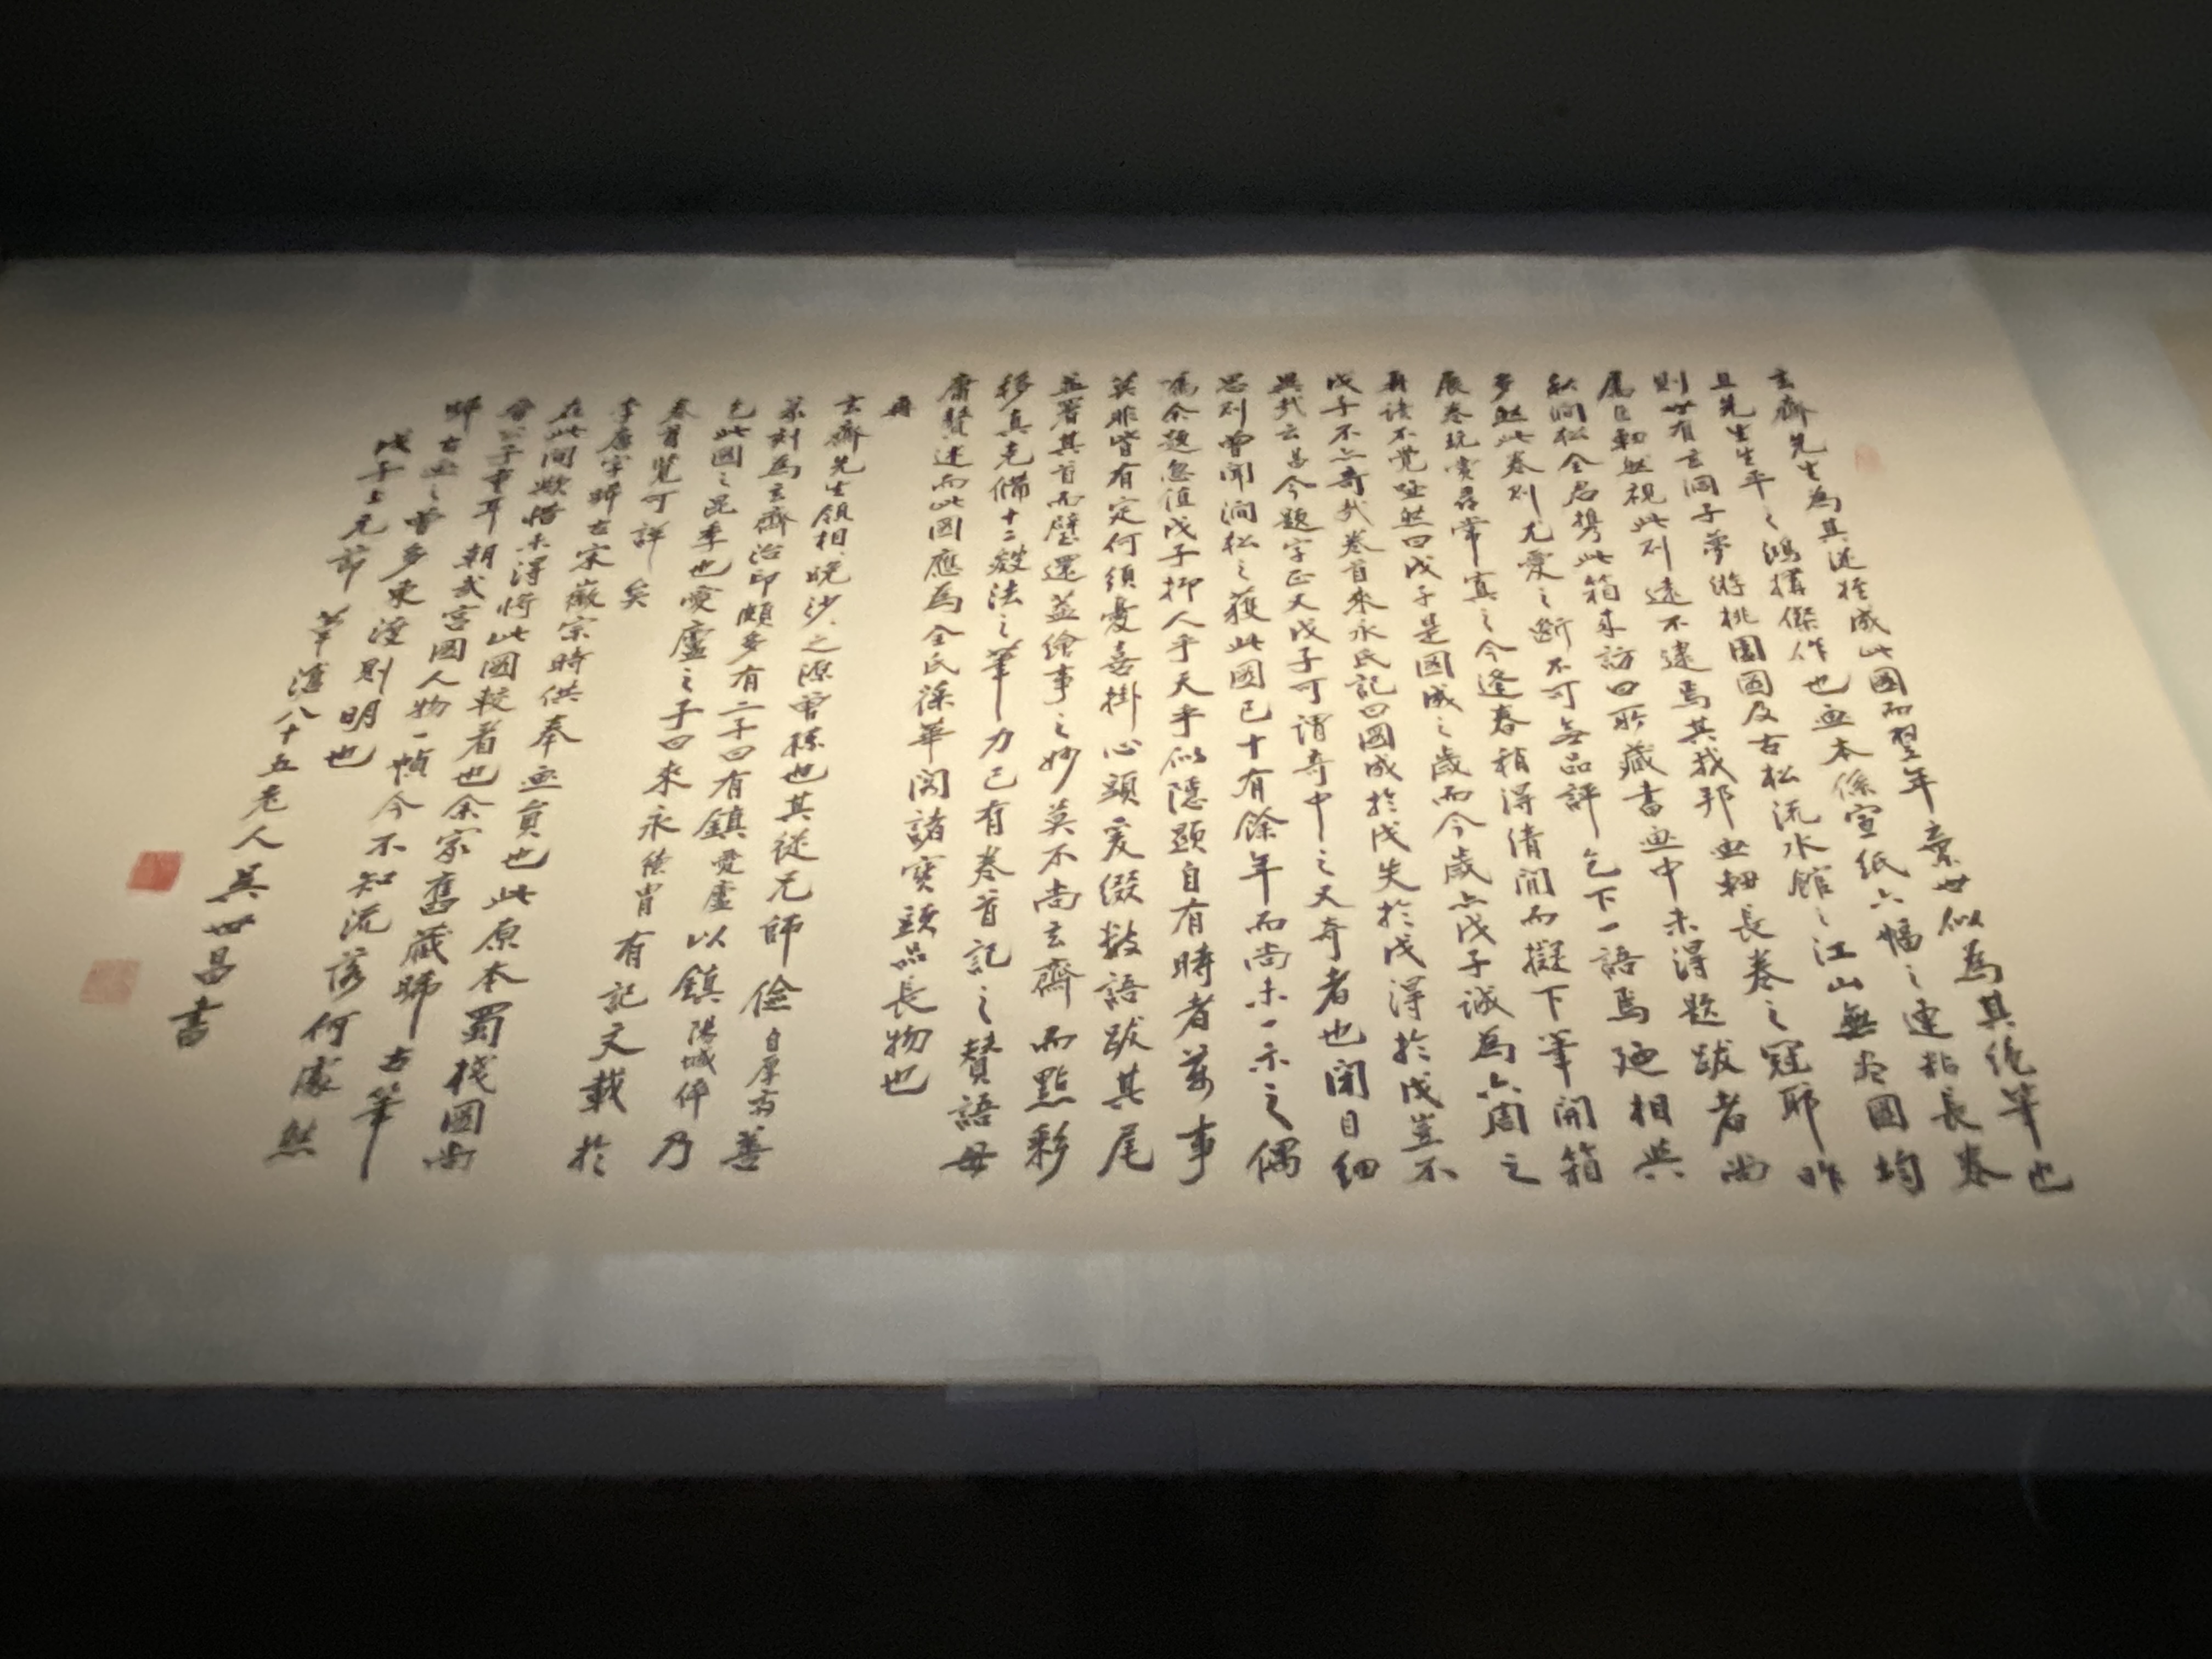 玄齋先生為其從姪成此圖而翌年棄世似為其絕筆也
且先生生平之鴻搆傑作也畫本係宣紙六幅之連粘長卷
則世有玄洞子夢游桃園圖及古松流水館之江山無盡圖均
尾巨軸然視此則遠不逮焉其我邦畫軸長卷之冠耶昨
秋澗松全君携此箱來訪曰所藏書畫中未得題跋者尚
多然此卷則尤愛之斷不可無品評乞下一語焉廼相與
展卷玩賞尋常寘之今逢春稍得清閒而擬下筆開箱
再讀不覺啞然曰戊子是圖成之歲而今歲亦戊子誠為六周之
戊子不亦奇哉卷首來永氏記曰圖成於戊失於戊得於戊豈不
異哉云
今題字正又戊子可謂奇中之又奇者也閉目細
思則曾聞澗松之獲此圖已十有餘年而尚未一示之偶
囑余題忽值戊子抑人乎天乎似隱顯自有時者茲事
莫非皆有定何須憂喜掛心頭爰綴數語跋其尾
並署其首而璧還蓋繪事之妙莫不尚玄齋而點彩
移真克備十二
法之筆力已有卷首記之贊語毋
庸贅述而此圖應為全氏葆華閣諸寶頭品長物也
再
玄齋先生領相晚沙之
曾孫也其從兄師儉自厚
善
篆刻為玄齋治印頗多有二子曰有鎮
虛以鎮陽城伴乃
乞此圖之昆季也
虛之子曰來永
有記文載於
卷首覽可詳矣
李唐字晞古宋徽宗時供奉畫員也此原本蜀棧圖尚
在此間歟惜未得將此圖較看也余家舊藏晞古筆
晉公子重耳朝武宮圖人物一幀今不知流落何處然
晞古畫之曾多東漸則明也
戊子上元節
八十五老人吳世昌書